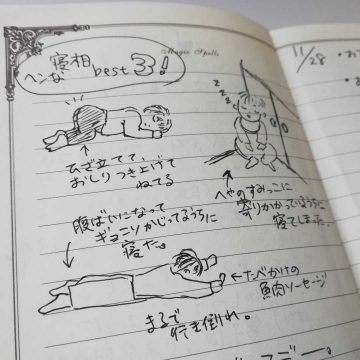 Magic Spells
ヘンな寝相best3!
zzz
ひざ立てて、
おしりつき上げて
ねてる
へやのすみっこに
寄りかかっているうちに
寝てしまった。
腹ばいになって
ギョニソかじってるうちに
寝た。
←たべかけの
魚肉ソーセージ
まるで
行き倒れ。
11/28